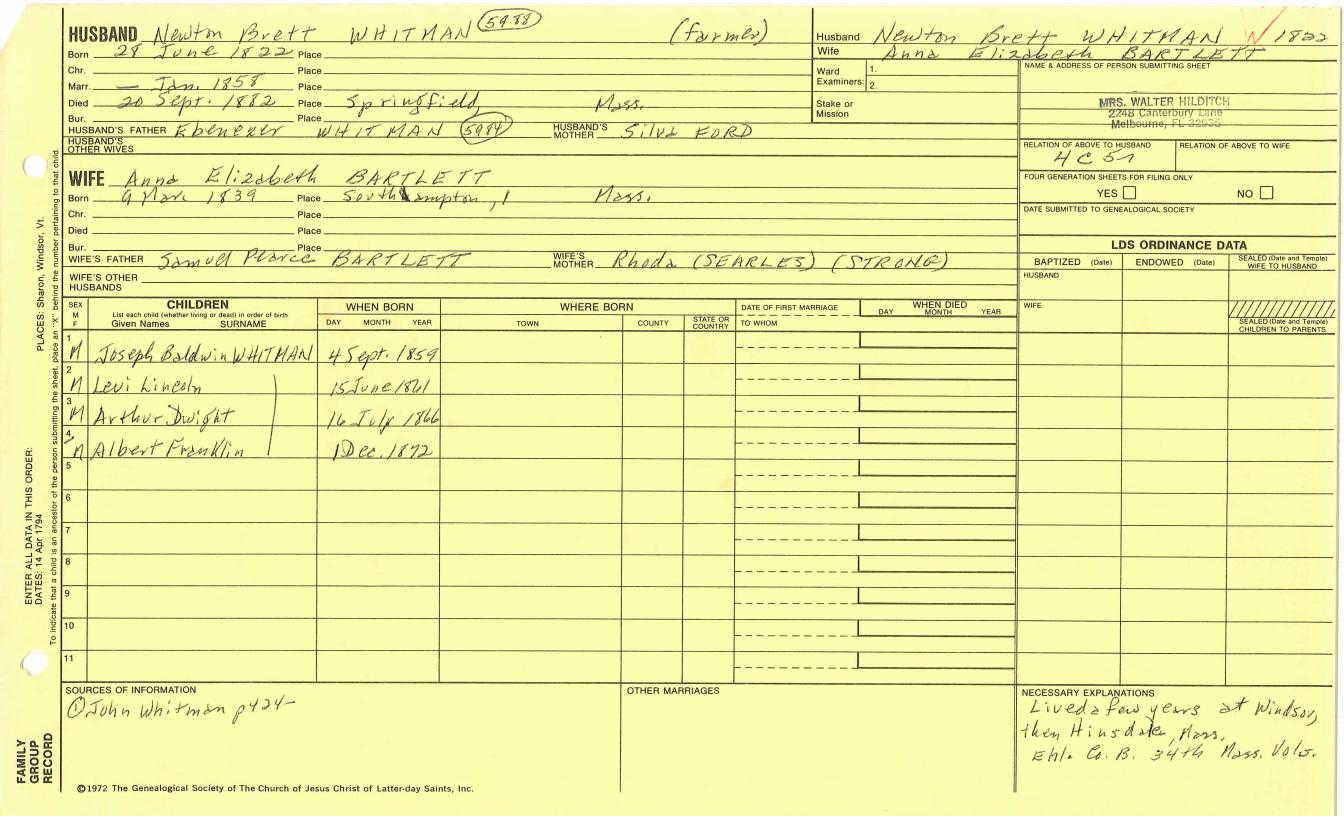 HUSBAND Newton Brett WHITMAN 5988 (farmer)
Born 28 June 1822 Place
Chr. Place
Marr. — Jan. 1858 Place
Died 20 Sept. 1882 Place Springfield, Mass.
Bur. Place
HUSBAND'S FATHER Ebenezer WHITMAN 5984 HUSBAND'S MOTHER Silva FORD
HUSBAND'S OTHER WIVES
WIFE Anna Elizabeth BARTLETT
Born 9 Mar. 1839 Place Southampton, Mass.
Chr. Place
Died Place
Bur. Place
WIFE'S FATHER Samuel Pearce BARTLETT WIFE'S MOTHER Rhoda (SEARLES) (STRONG)
WIFE'S OTHER HUSBANDS
Husband Newton Brett WHITMAN W 1822
Wife Anna Elizabeth BARTLETT
Ward Examiners: 1.
2.
Stake or Mission
NAME & ADDRESS OF PERSON SUBMITTING SHEET
MRS. WALTER HILDITCH
2248 Canterbury Lane
Melbourne, FL 32935
RELATION OF ABOVE TO HUSBAND RELATION OF ABOVE TO WIFE
4C5r
FOUR GENERATION SHEETS FOR FILING ONLY
YES NO
DATE SUBMITTED TO GENEALOGICAL SOCIETY
LDS ORDINANCE DATA
BAPTIZED (Date) ENDOWED (Date) SEALED (Date and Temple) WIFE TO HUSBAND
HUSBAND
WIFE
SEALED (Date and Temple) CHILDREN TO PARENTS
SEX M F CHILDREN WHEN BORN WHERE BORN DATE OF FIRST MARRIAGE WHEN DIED
List each child (whether living or dead) in order of birth
Given Names SURNAME DAY MONTH YEAR TOWN COUNTY STATE OR COUNTRY TO WHOM DAY MONTH YEAR
1 M Joseph Baldwin WHITMAN 4 Sept. 1859
2 M Levi Lincoln 15 June 1861
3 M Arthur Dwight 16 July 1866
4 M Albert Franklin 1 Dec. 1872
5
6
7
8
9
10
11
SOURCES OF INFORMATION
① John Whitman p424
OTHER MARRIAGES
NECESSARY EXPLANATIONS
Lived a few years at Windsor,
then Hinsdale, Mass.
Enl. Co. B. 34th Mass. Vols.
©1972 The Genealogical Society of The Church of Jesus Christ of Latter-day Saints, Inc.
FAMILY GROUP RECORD
ENTER ALL DATA IN THIS ORDER:
DATES: 14 Apr 1794
PLACES: Sharon, Windsor, Vt.
To indicate that a child is an ancestor of the person submitting the sheet, place an "X" behind the number pertaining to that child.